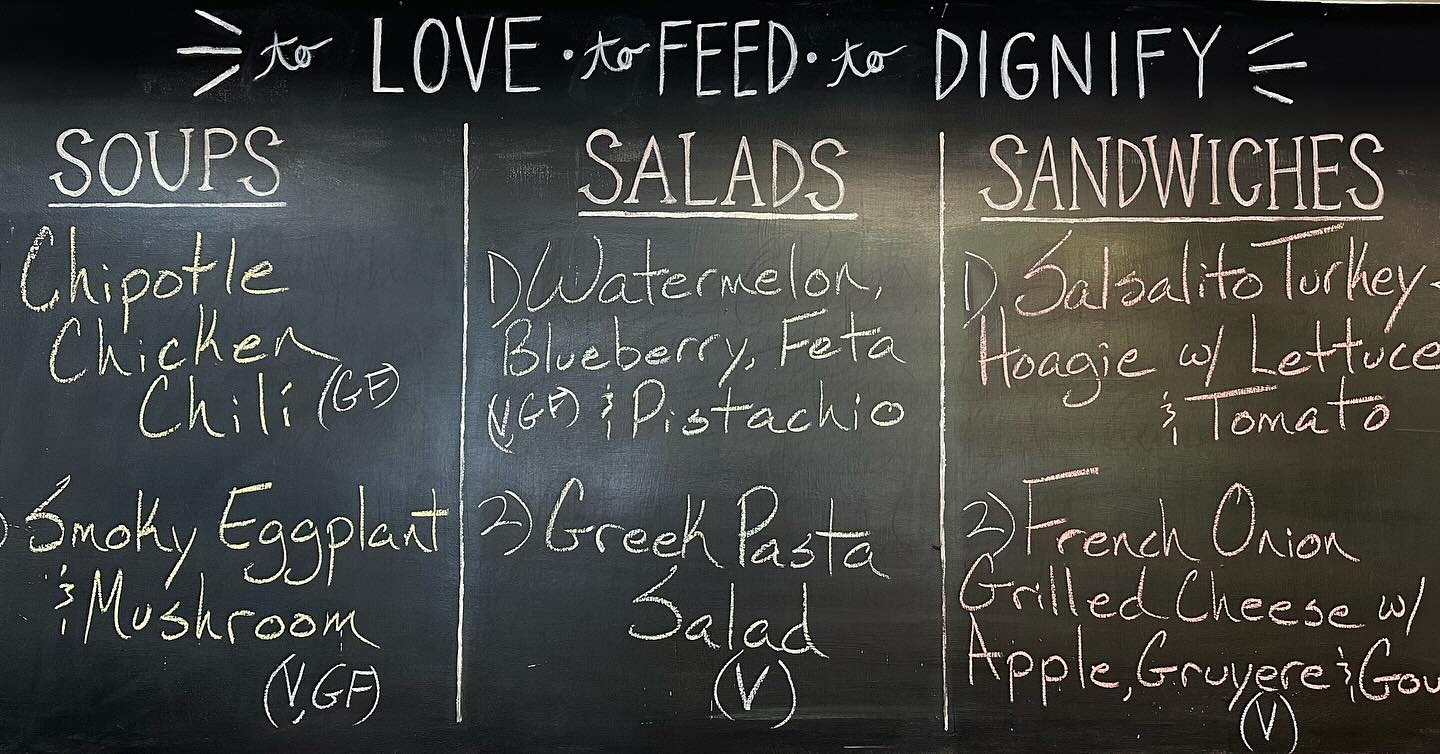 to LOVE · to FEED · to DIGNIFY
SOUPS
Chipotle
Chicken
Chili (GF)
) Smoky Eggplant
& Mushroom
(V, GF)
SALADS
1) Watermelon,
Blueberry, Feta
(V, GF) & Pistachio
2) Greek Pasta
Salad
(V)
SANDWICHES
1) Salsalito Turkey
Hoagie w/ Lettuce
& Tomato
2) French Onion
Grilled Cheese w/
Apple, Gruyere & Gou
(V)